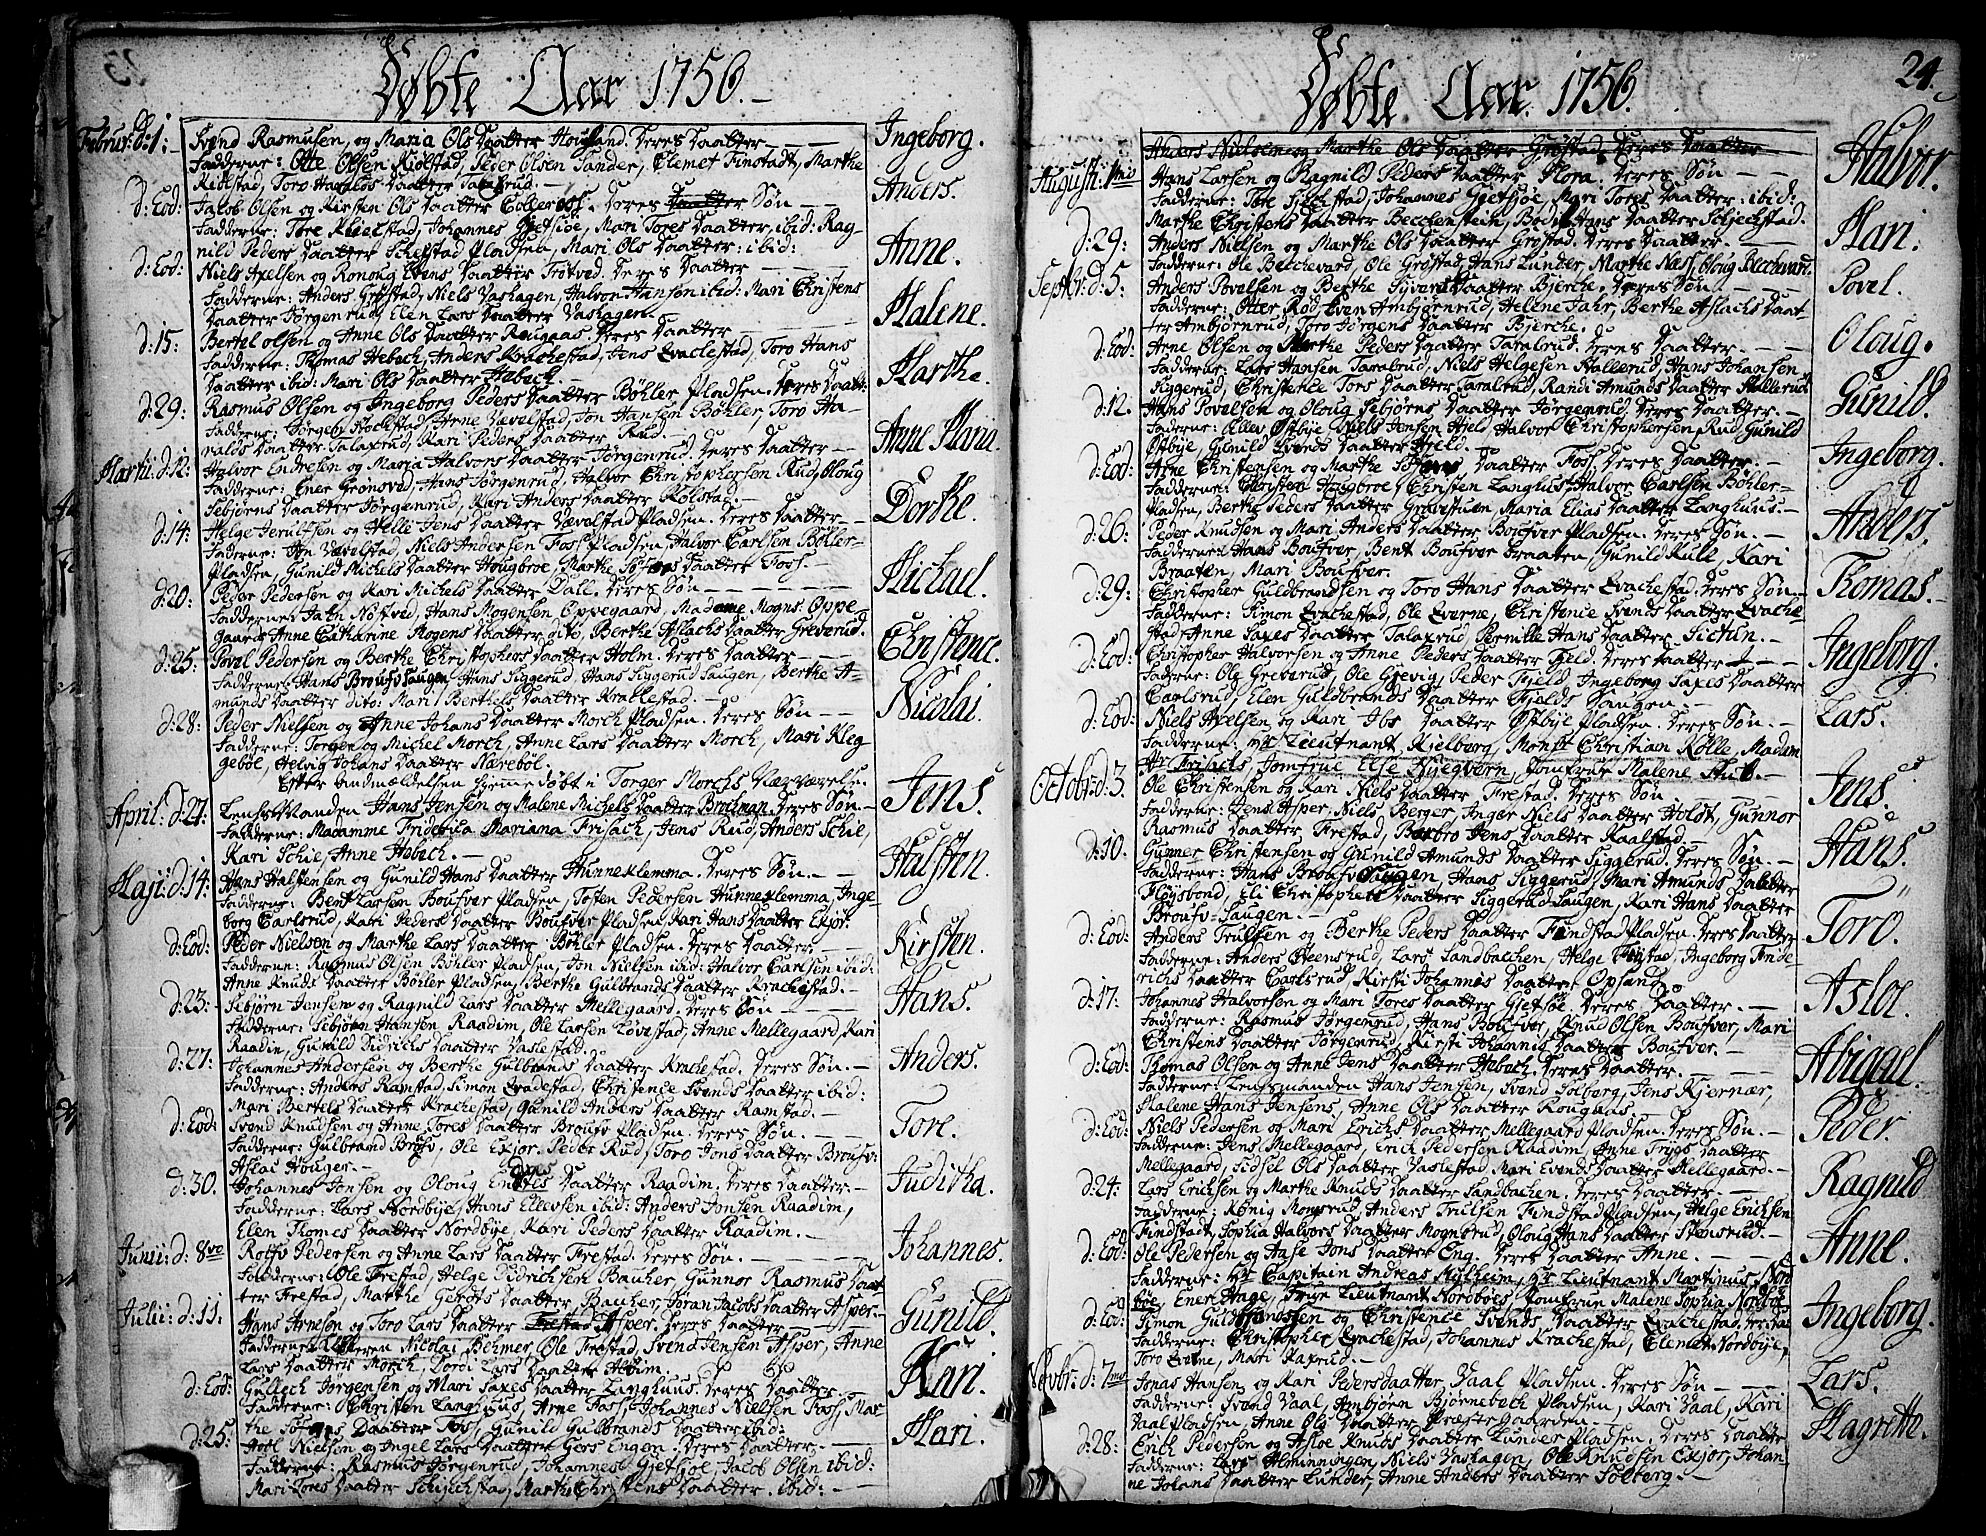 Døbte Aar 1756.
Februr: d: 1: Svend Rasmusen, og Maria Ols Daatter Hougland. Deres Daatter Ingeborg.
Fadderne: Otte Olsen Kiølstad, Peder Olsen Sander, Clemet Finstadt, Marthe
Kiølstad, Toro Haralds Daatter Talaxrud.
d: Eod: Jacob Olsen og Kirsten Ols Daatter Deres Daatter Søn Anders.
Fadderne: Tore Johannes Gjetsjøe, Mari Tores Daatter, ibid: Rag-
nild Peders Daatter Pladsen, Mari Ols Daatter: ibid:
d: Eod: Niels Axelsen og Ronoug Evens Daatter Trötved. Deres Daatter Anne.
Fadderne: Anders Grøstad, Niels Vashagen, Halvor Hansen ibid: Mari Christens
Daatter Jørgenrud, Elen Lars Daatter Vashagen.
d: 15: Bertel Olsen og Anne Ols Daatter Rougaas. Deres Daatter Malene.
Fadderne: Thomas Hebech, Anders Krachestad, Jens Evachestad, Toro Hans
Daatter ibid: Mari Ols Daatter Hebech.
d: 29: Rasmus Olsen og Ingeborg Peders Daatter Böhler Pladsen. Deres Daatt: Marthe.
Fadderne: Jørgen Rochstad, Arne Vævelstad, Jon Hansen Böhler, Toro Ha-
ralds Daatter Talaxrud, Kari Peders Daatter Rud.
Martii: d: 12: Halvor Endresen og Maria Halvors Daatter Jørgenrud. Deres Daatter Anne Maria.
Fadderne: Ener Grønsved, Hans Jørgenrud, Halvor Christophersen Rud, Oloug
Sebjörns Daatter Jørgenrud, Kari Anders Daatter Kølstad.
d: 14: Helge Jerulfsen og Helle Jens Daatter Vævelstad Pladsen. Deres Daatter Dorthe.
Fadderne: Jon Vævelstad, Niels Andersen Foss Pladsen, Halvor Carlsen Böhler-
Pladsen, Gunild Michels Daatter Hougbroe, Marthe Daatter Foss.
d: 20: Peder Pedersen og Kari Michels Daatter Dall. Deres Søn Michael.
Fadderne: Jahn Nøstved, Hans Mogensen Oppegaard, Madame Mogns: Oppe-
gaard, Anne Catharine Mogens Daatter dito, Berthe Aslachs Daatter Greverud.
d: 25: Povel Pedersen og Berthe Christophers Daatter Holm. Deres Daatter Christence.
Fadderne: Hans Broufvsaugen, Hans Siggerud, Hans Siggerud Saugen, Berthe A-
munds Daatter dito: Mari Berthels Daatter Krakkestad.
d: 28: Peder Nielsen og Anne Johans Daatter Morch Pladsen. Deres Søn Nicolai.
Fadderne: Torgen og Michel Morch, Anne Lars Daatter Morch, Mari Kleg-
gebøe, Helvig Johans Daatter Nærebøl.
Efter anmeldelsen hjemmedøbt i Torger Morchs Nærværelse.
April: d: 27: Lensmanden Hans Jensen og Malene Michels Daatter Brohman. Deres Søn Jens.
Fadderne: Madamme Friderica Mariana Frisach, Jens Rud, Anders Schie,
Kari Schie, Anne Hebech.
Maji: d: 14: Hans Halstensen og Gunild Hans Daatter Hunneklemma. Deres Søn. Halsten.
Fadderne: Bent Larsen Boufver Pladsen, Tosten Pedersen Hunneklemma, Inge-
borg Carlsrud, Kari Peders Daatter Boufver Pladsen, Kari Hans Daatter Exjor.
d: Eod: Peder Nielsen og Marthe Lars Daatter Böhler Pladsen. Deres Daatter. Kirsten.
Fadderne: Rasmus Olsen Böhler Pladsen, Jon Nielsen ibid: Halvor Carlsen ibid:
Anne Knuds Daatter Böhler Pladsen, Berthe Gulbrands Daatter Krachestad.
d: 23: Sebjörn Jensen og Ragnild Lars Daatter Mellegaard. Deres Søn Hans.
Fadderne: Sebjörn Hansen Raadim, Ole Larsen Løvestad, Anne Mellegaard, Kari
Raadim, Gunild Didrichs Daatter Vaslestad.
d: 27: Johannes Andersen og Berthe Gulbrands Daatter Krachestad. Deres Søn. Anders.
Fadderne: Anders Ramstad, Simon Evachestad, Christence Svends Daatter ibid:
Mari Bertels Daatter Krachestad, Gunild Anders Daatter Ramstad.
d: Eod: Svend Knudsen og Anne Tores Daatter Broufv Pladsen. Deres Søn. Tore.
Fadderne: Gulbrand Broufv, Ole Exjor, Peder Rud, Toro Jons Daatter Broufv:
Aslac Houger.
d: 30. Johannes Jonsen og Oloug Daatter Raadim. Deres Daatter. Juditha.
Fadderne: Lars Nordbye, Hans Ellevsen ibid: Anders Jonsen Raadim,
Elen Thomes Daatter Nordbye, Kari Peders Daatter Raadim.
Junii: d: 8vo Rolfv Pedersen og Anne Lars Daatter Frestad. Deres Søn. Johannes.
Fadderne: Ole Frestad, Helge Didrichsen Bauher, Gunnor Rasmus Daat-
ter Frestad, Marthe Gerods Daatter Bauher, Søran Jacobs Daatter Asper.
Julii: d: 11: Hans Arnesen og Toro Lars Daatter Frestad Asper. Deres Daatter Gunild.
Fadderne: Nicolai Bøhmer, Ole Frestad, Svend Jensen Asper, Anne
Lars Daatter Morch, Dordi Lars Daatter Aldim.
d: Eod: Gullech Jørgensen og Mari Saxes Daatter Langhuus. Deres Daatter Kari.
Fadderne: Christen Langhuus, Arne Foss, Johannes Nielsen Foss, Mar-
the Daatter Foss, Gunild Gulbrands Daatter ibid:
d: 25: Axel Nielsen og Ingel Lars Daatter Gers Engen. Deres Daatter. Mari.
Fadderne: Rasmus Jørgenrud, Johannes Gjetsjøe, Jacob Olsen ibid:
Mari Tores Daatter Schjechstad, Marthe Christens Daatter. ibid:
Døbte Aar 1756. 24.
Anders Nielsen og Marthe Ols Daatter Grøstad. Deres Daatter
August: 1mo Hans Larsen og Ragnild Peders Daatter Flora. Deres Søn Halvor.
Fadderne: Tore Schiechstad, Johannes Gjetsjøe, Mari Tores Daatter: ibid:
Marthe Christens Daatter Bechensteen, Bodil Hans Daatter Schjechstad.
d: 29: Anders Nielsen og Marthe Ols Daatter Grøstad. Deres Daatter. Mari.
Fadderne: Ole Bechevard, Ole Grøstad, Hans Lunder, Marthe Næss, Oloug Bechevard.
Septbr: d: 5: Anders Povelsen og Berthe Syvers Daatter Bjerche. Deres Søn Povel.
Fadderne: Otter Rød, Even Ambjörnrud, Helene Fahr, Berthe Aslachs Daat-
ter Ambjörnrud, Toro Jørgens Daatter Bjerche.
d: Eod: Arne Olsen og Marthe Peders Daatter Taralrud. Deres Daatter. Oloug.
Fadderne: Lars Hansen Taralrud, Niels Helgesen Hallerud, Hans Johansen
Siggerud, Christence Tors Daatter Taralrud, Randi Amunds Daatter Hallerud.
d: 12. Hans Povelsen og Oloug Sebjörns Daatter Jørgenrud. Deres Daatter. Gunild.
Fadderne: Ellev Østbye, Niels Jensen Hield, Halvor Christophersen Rud, Gunild
Østbye, Gunild Svends Daatter Hield.
d: Eod: Arne Christensen og Marthe Daatter Foss. Deres Daatter. Ingeborg.
Fadderne: Christen Hougbroe, Christen Langhus, Halvor Carlsen Böhler-
Pladsen, Berthe Peders Daatter Gravstuen, Maria Elias Daatter Langhuus.
d: 26: Peder Knudsen og Mari Anders Daatter Boufver Pladsen. Deres Søn. Anders.
Fadderne: Hans Boufver, Bent Boufver Braaten, Gunild Kull, Kari
Braaten, Mari Boufver.
d: 29: Christopher Guldbrandsen og Toro Hans Daatter Evachestad. Deres Søn. Thomas.
Fadderne: Simon Evachestad, Ole Everne, Christence Svends Daatter Evache-
stad, Anne Saxes Daatter Talaxrud, Pernille Hans Daatter Sictun.
d: Eod: Christopher Halvorsen og Anne Peders Daatter Fjeld. Deres Daatter Ingeborg.
Faderne: Ole Greverud, Ole Grevig, Peder Fjeld, Ingeborg Saxes Daatter
Carlsrud, Elen Guldbrands Daatter Fjelds Saugen.
d: Eod: Niels Axelsen og Kari Ibs Daatter Østbye Pladsen. Deres Søn. Lars.
Fadderne: Hr Lieutnant Kjelborg, Monsr Christian Kølle, Madam
Frisachs, Jomfrue Else Nyegborn, Jomfrue Malene Stub.
Octobr: d 3. Ole Christensen og Kari Niels Daatter Frestad. Deres Søn Jens.
Fadderne: Jens Asper, Niels Berger, Inger Niels Daatter Holdt, Gunnor
Rasmus Daatter Frestad, Barbro Jens Daatter Kaalstad.
d: 10. Gunner Christensen og Gunild Amunds Daatter Siggerud. Deres Søn. Hans.
Fadderne: Hans Broufvsaugen, Hans Siggerud, Mari Amunds Daatter
Fløysbond, Eli Christophers Daatter Siggerud Saugen, Kari Hans Daatter
Broufv-Saugen.
d: Eod: Anders Trulsen og Berthe Peders Daatter Findstad Pladsen. Deres Daatter Toro.
Fadderne: Anders Steensrud, Lars Sandbachen, Helge Findstad, Ingeborg Fride-
richs Daatter Carlsrud, Kirsti Johannes Daatter Opsand.
d: 17: Johannes Halvorsen og Mari Tores Daatter Gjetsøe. Deres Daatter. Asloe.
Fadderne: Rasmus Jørgenrud, Hans Boufver, Knud Olsen Boufver, Mari
Christens Daatter Jørgenrud, Kirsti Johannis Daatter Boufver.
d: Eod: Thomas Olsen og Anne Jens Daatter Hebech. Deres Daatter. Abigael.
Fadderne: Lensmanden Hans Jensen, Svend Solberg, Jens Kjernær,
Malene Hans Jensens, Anne Ols Daatter Rougaas.
d: Eod: Niels Pedersen og Mari Erichs Daatter Mellegaard Pladsen. Deres Søn. Peder.
Fadderne: Jens Mellegaard, Erich Pedersen Raadim, Anne Trygs Daatter
Mellegaard, Sidsel Ols Daatter Vaslestad, Mari Evends Daatter Mellegaard.
d: 24: Lars Erichsen og Marthe Knuds Daatter Sandbachen. Deres Daatter. Ragnild
Fadderne: König Monsrud, Anders Trulsen Findstad Pladsen, Helge Erichsen
Findstadt, Sophia Halvors Daatter Mognsrud, Oloug Hans Daatter Stensrud.
d: Eod: Ole Pedersen og Aase Jons Daatter Eng. Deres Daatter Anne. Anne.
Fadderne: Hr Capitain Andreas Mylheim, Hr Lieutnant Martinus Nord-
böe, Ener Hage, Frue Lieutnant Nordböes, Jomfrue Malene Sophia Nordböe.
d: Eod: Simon Guldbrandsen og Christence Svends Daatter Evachestad. Der: Daa: Ingeborg.
Fadderne: Christopher Evachestad, Johannes Krachestad, Clemet Nordbye,
Toro Everne, Mari Kaxrud.
Novbr: d: 7mo Jonas Hansen og Kari Peders Daatter Vaal Pladsen. Deres Søn Lars.
Fadderne: Svend Vaal, Ambjörn Bjørnebech Pladsen, Kari Vaal, Kari
Vaal Pladsen, Anne Ols Daatter Præstegaarden.
d: 28: Erich Pedersen og Asloe Knuds Daatter Lunder Pladsen. Deres Daatter Magrette.
Fadderne: Lars Alminningen, Niels Vashagen, Ole Knudsen Exjor, Johan-
ne Johans Daatter Lunder, Anne Anders Daatter Solberg.